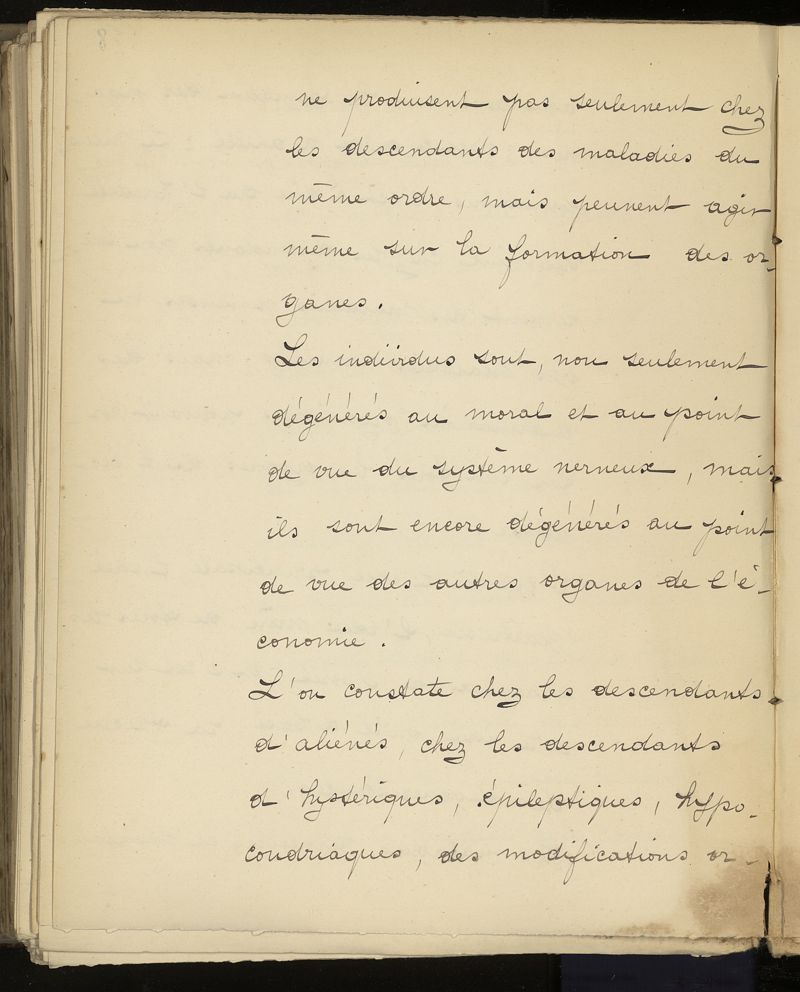 ne produisent pas seulement chez
les descendants des maladies du
même ordre, mais peuvent agir
même sur la formation des or-
ganes.
Les individus sont, non seulement
dégénérés au moral et au point
de vue du système nerveux, mais
ils sont encore dégénérés au point
de vue des autres organes de l'é-
conomie.
L'on constate chez les descendants
d'aliénés, chez les descendants
d'hystériques, épileptiques, hypo-
condriaques, des modifications or-